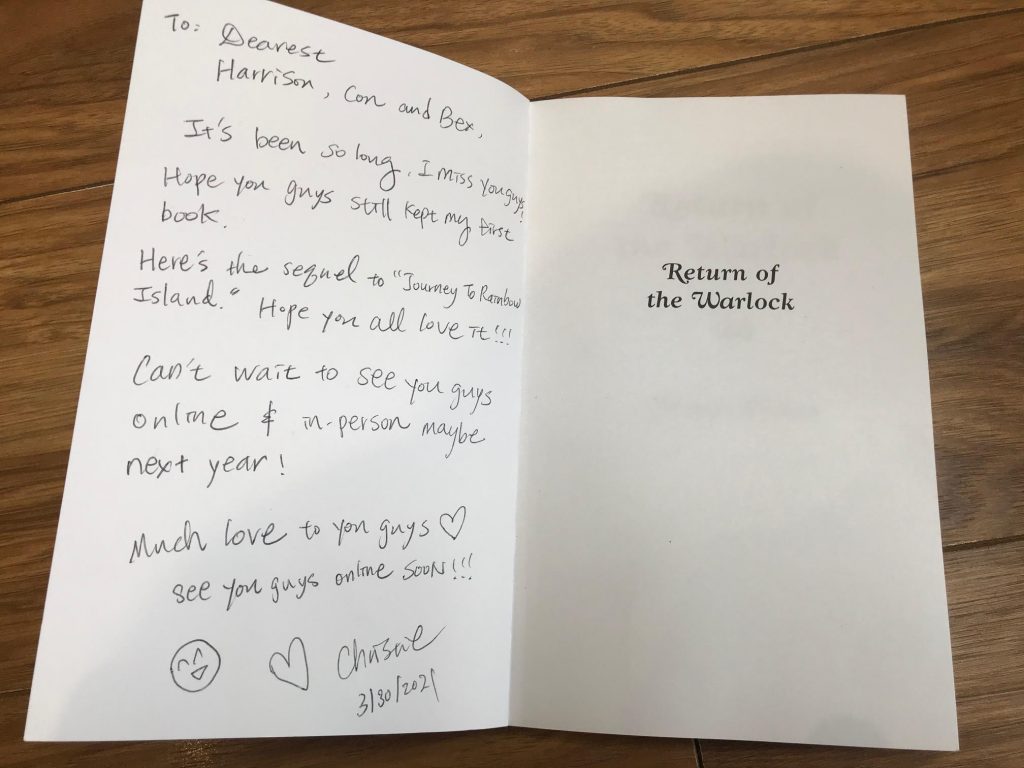 To: Dearest
Harrison, Con and Bex,
It's been so long, I miss you guys!
Hope you guys still kept my first
book.
Here's the sequel to "Journey To Rainbow
Island." Hope you all love it!!!
Can't wait to see you guys
online & in-person maybe
next year!
Much love to you guys ♡
see you guys online soon!!!
3/30/2021
Return of
the Warlock